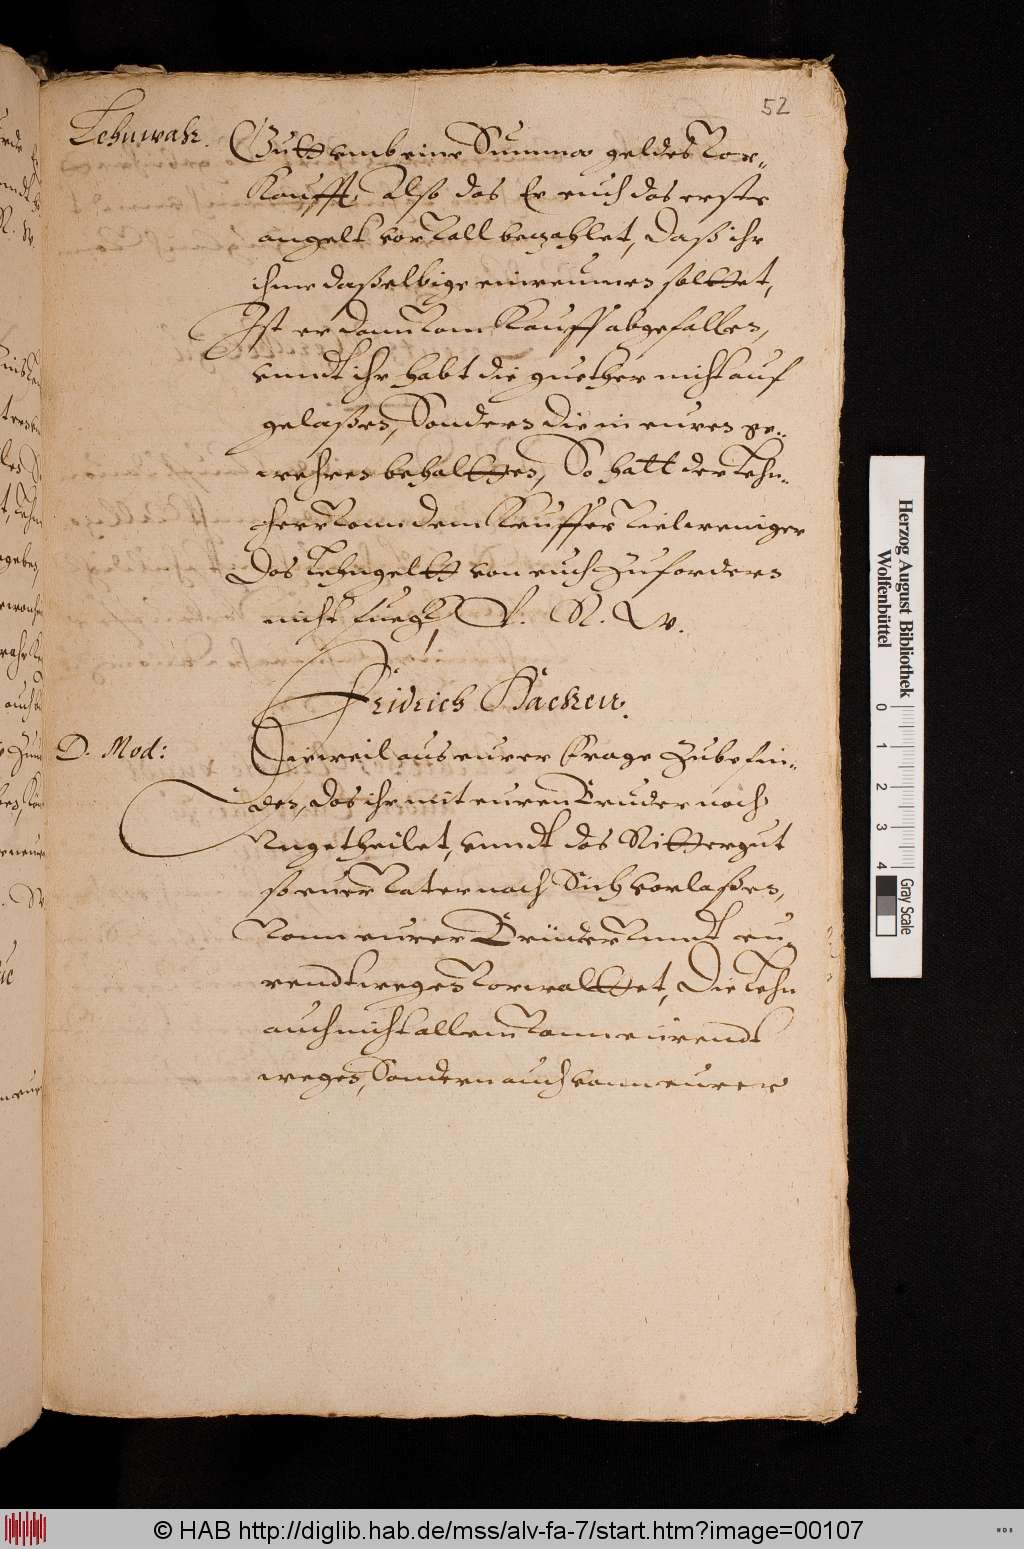 52
Lehnwahr.
Gutt umb eine Summa geldes vor-
kaufft, Also das Er euch das erste
angelt vorvall bezahlet, Daß ihr
ihme daßelbige einreumen soltet,
Ist er dann vom Kauff abgefallen,
unndt ihr habt die guether nicht auf
gelaßen, Sondern die in euren ge-
wehren behaltten, So hatt der Lehn-
herr vonn dem Keuffer viel weniger
das Lehngeltt von euch zufordern
nicht fueg, V. R. W.
Fridrich Backen.
D. Mod:
Dieweil aus eurer Frage zubefin-
den, das ihr mit euren Bruder noch
Ungetheilet, unndt das Rittergut
so euer Vater nach Sich vorlaßen,
vonn eurer Brüder unndt eu-
rendtwegen vorwalttet, Die Lehn
auch nicht allein vonn eurendt
wegen, Sondern auch vonn eurer
Herzog August Bibliothek
Wolfenbüttel
0 1 2 3 4
Gray Scale
© HAB http://diglib.hab.de/mss/alv-fa-7/start.htm?image=00107